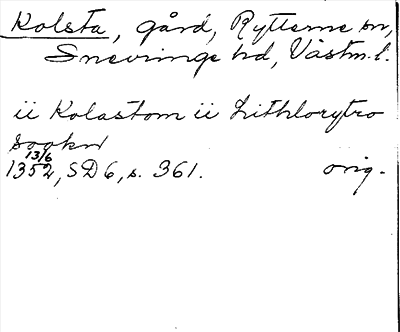 Kolsta, gård, Rytterne sn,
Snevringe hd, Västm. l.
ii Kolastom ii Lithlorytro
sookn
13/6
1352, SD 6, s. 361. orig.